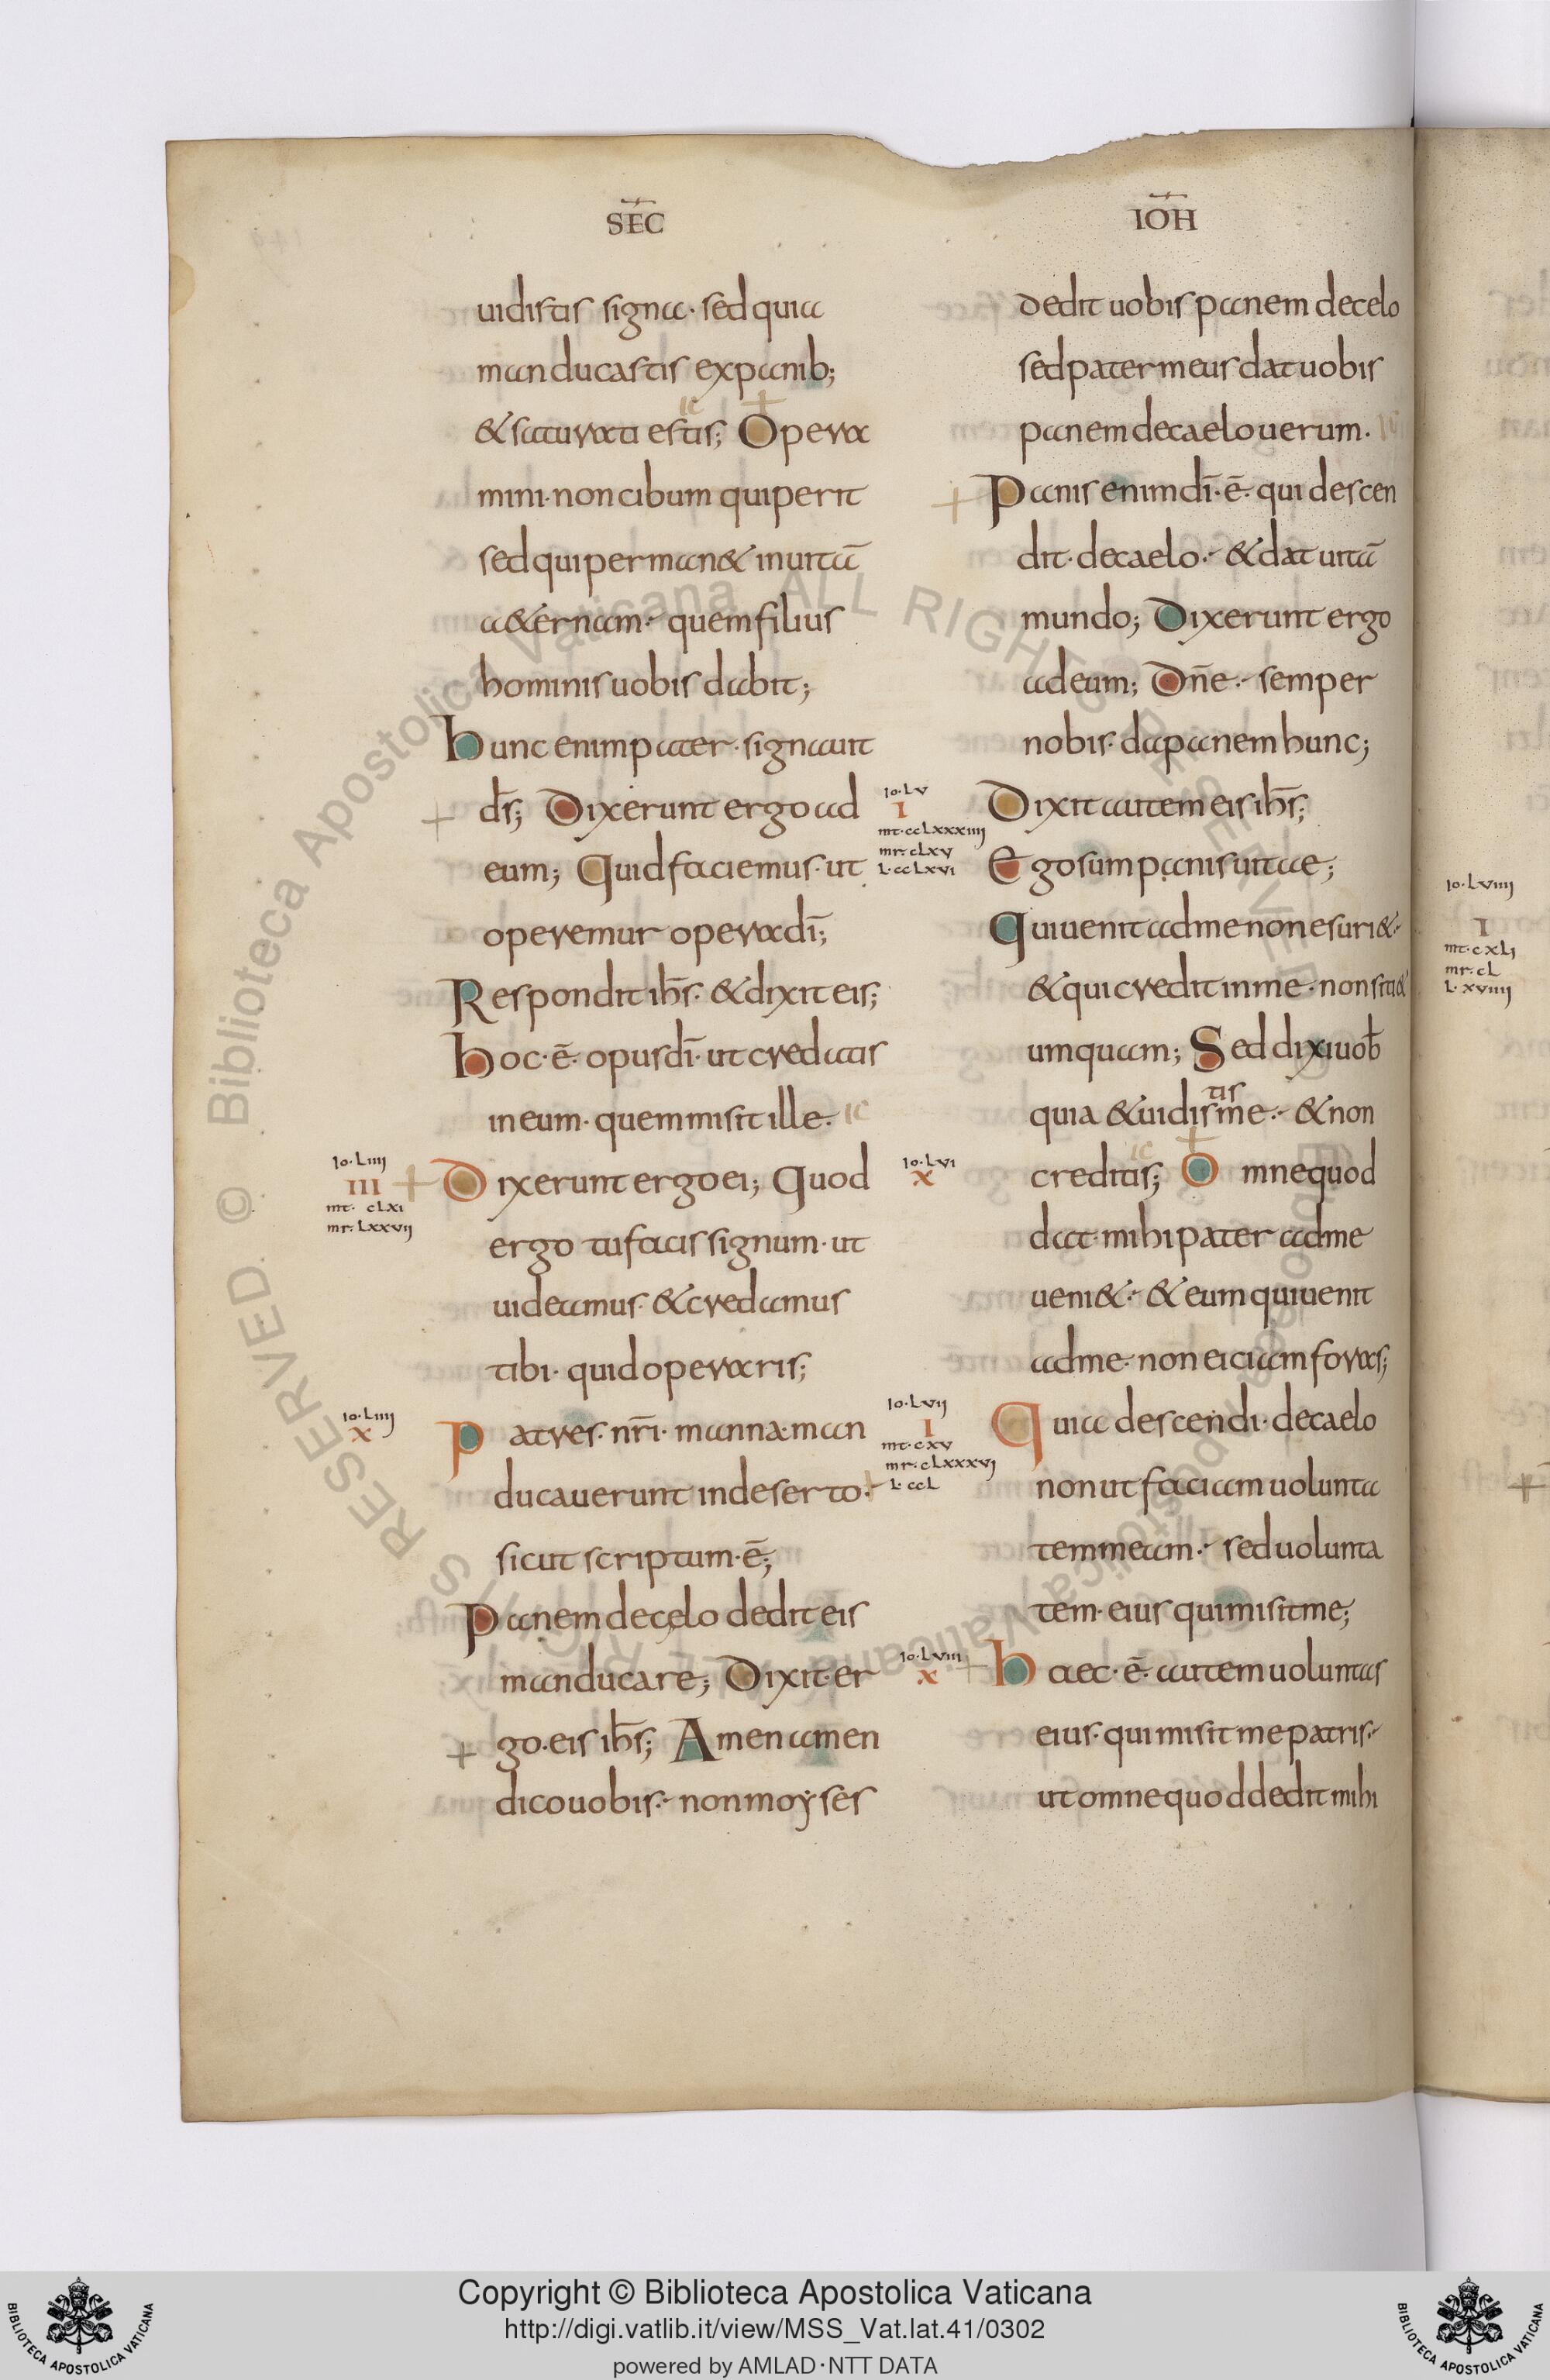 SEC̄
uidistis signa· sed quia
manducastis ex panib;
& saturati estis; Opera
mini· non cibum qui perit
sed qui perman& in uitā
a&ernam·- quem filius
hominis uobis dabit;
hunc enim pater· signauit
d̄s; Dixerunt ergo ad
eum; Quid faciemus· ut
operemur opera dī;
Respondit ih̄s· & dixit eis;
hoc· ē· opus dī· ut credatis
in eum· quem misit ille·
Io·LIIII
III
mt· cLxı
mr· Lxxvıȷ
Dixerunt ergo ei; Quod
ergo tu facis signum· ut
uideamus· & credamus
tibi· quid operaris;
Io·LIIII
x
Patres· nr̄i· manna· man
ducauerunt in deserto·-
sicut scriptum· ē;
Panem de celo dedit eis
manducare; Dixit· er
go· eis ih̄s; Amen amen
dico uobis·- non moẏses
IOH̄
dedit uobis panem de celo
sed pater meus dat uobis
panem de caelo uerum·
Panis enim dī· ē· qui descen
dit· de caelo·- & dat uitā
mundo; Dixerunt ergo
ad eum; Dn̄e·- semper
nobis· da panem hunc;
Io·Lv
I
mt·ccLxxxıııȷ
mr·cLxv
L·ccLxvı
Dixit autem eis ih̄s;
Ego sum panis uitae;
Qui uenit ad me non esuri&·-
& qui credit in me· non siti&
umquam; Sed dixi uob̄
quia & uidistis me·- & non
Io·Lvı
x
creditis; Omne quod
dat· mihi pater ad me
ueni&·- & eum qui uenit
ad me· non eiciam foras;
Io·Lvıȷ
I
mt·cxv
mr·cLxxxvȷ
L·ccL
Quia descendi· de caelo
non ut faciam uolunta
tem meam·- sed uolunta
tem· eius qui misit me;
Io·Lvııı
x
haec· ē· autem uoluntas
eius· qui misit me patris·-
ut omne quod dedit mihi
Io·Lvıııȷ
I
mt·cxLȷ
mr·cL
L·xvıııȷ
Copyright © Biblioteca Apostolica Vaticana
http://digi.vatlib.it/view/MSS_Vat.lat.41/0302
powered by AMLAD·NTT DATA
BIBLIOTECA APOSTOLICA VATICANA
BIBLIOTECA APOSTOLICA VATICANA
© Biblioteca Apostolica Vaticana ALL RIGHTS RESERVED